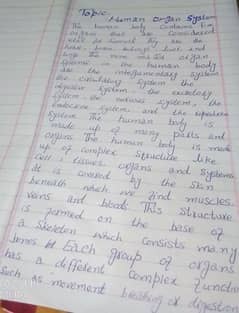 Topic
Human organ System
The human body contains five
organs that are considered
vital to They are the
heart, brain, kidneys, liver and
lungs The names of organ
Systems in the human body
are the integumentary system
the circulatory System the
digestive System the excretory
system, the nervous system, the
endocrine System, and the
System. The human body is
made up of many parts and
organs The human body is made
up of complex Structure like
Cell, tissues, organs and Systems
It is covered by the Skin
beneath which we find muscles
veins and blood. This Structure
is formed on the base of
a skeleton which consists many
bones Each group of organs
has a different Complex function
Such as movement breathing or digestion